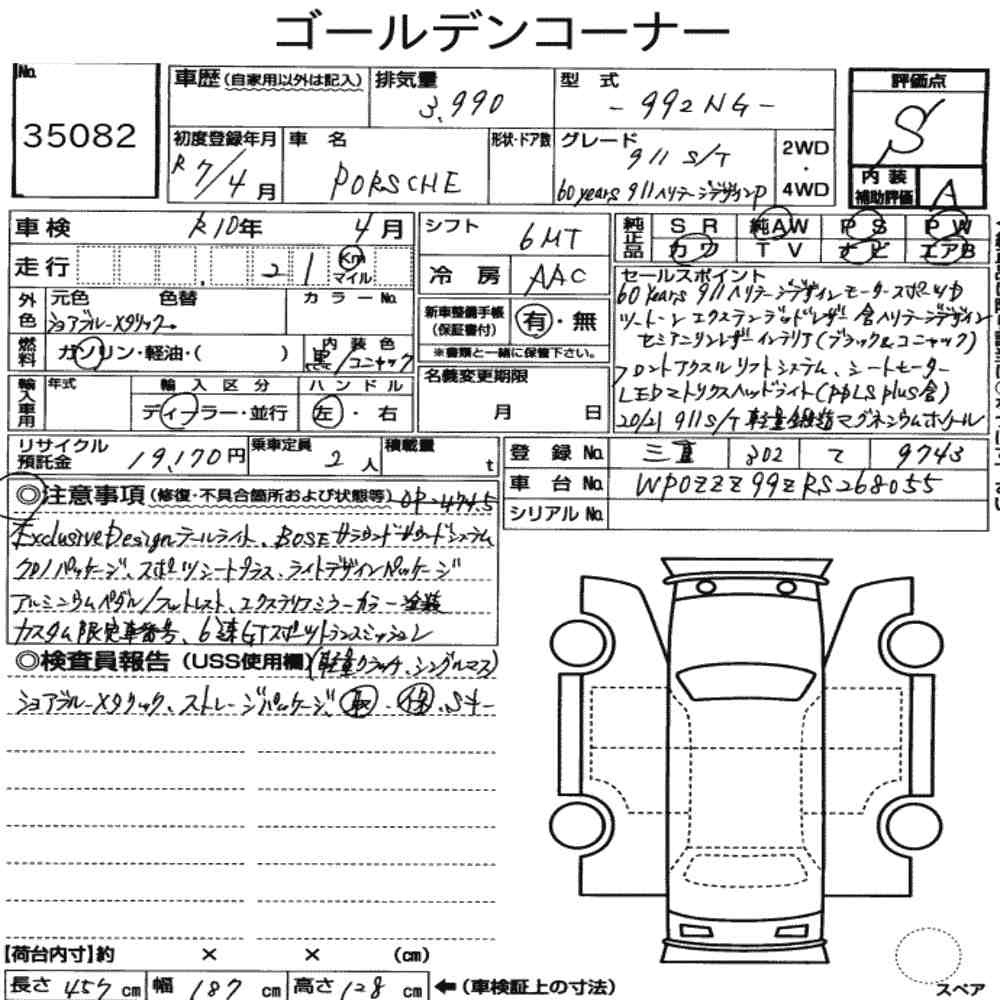 ゴールデンコーナー
No.
35082
車歴(自家用以外は記入)
排気量
3,990
型 式
-992NG-
評価点
S
初度登録年月
R7/4月
車 名
PORSCHE
形状・ドア数
グレード
911 S/T
60years 911ヘリテージデザインP
2WD
・
4WD
内 装
補助評価
A
車検
R10年 4月
シフト
6MT
純正品
SR 純AW PS PW
カワ TV ナビ エアB
走行
21
Km
マイル
冷 房
AAC
セールスポイント
60years 911ヘリテージデザインモータースポーツP
ツートーンエクステンデッドレザー 含ヘリテージデザイン
セミアニリンレザーインテリア(ブラック&コニャック)
フロントアクスルリフトシステム、シートモーター
LEDマトリクスヘッドライト(PDLS plus含)
20/21 911S/T 軽量鍛造マグネシウムホイール
外色
元色 色替
ショアブルーメタリック
カラーNo.
新車整備手帳
(保証書付)
有・無
※書類と一緒に保管下さい。
燃料
ガソリン・軽油・( )
内装色
黒/コニャック
輸入車用
年式
輸入区分
ディーラー・並行
ハンドル
左・右
名義変更期限
月 日
リサイクル
預託金
19,170円
乗車定員
2人
積載量
t
登 録 No.
三重 302 て 9743
車 台 No.
WP0ZZZ99ZRS268055
シリアルNo.
◎注意事項(修復・不具合箇所および状態等) OP-474.5
Exclusive Designテールライト、BOSEサラウンドサウンドシステム
クロノパッケージ、スポーツシートプラス、ライトデザインパッケージ
アルミニウムペダル/フットレスト、エクステリアミラーカラー塗装
カスタム限定車番号、6速GTスポーツトランスミッション
◎検査員報告(USS使用欄)(軽量クラッチ、シングルマス)
ショアブルーメタリック、ストレージパッケージ、取・保・Sキー
【荷台内寸】約 × × (cm)
長さ 457 cm
幅 187 cm
高さ 128 cm
←(車検証上の寸法)
スペア